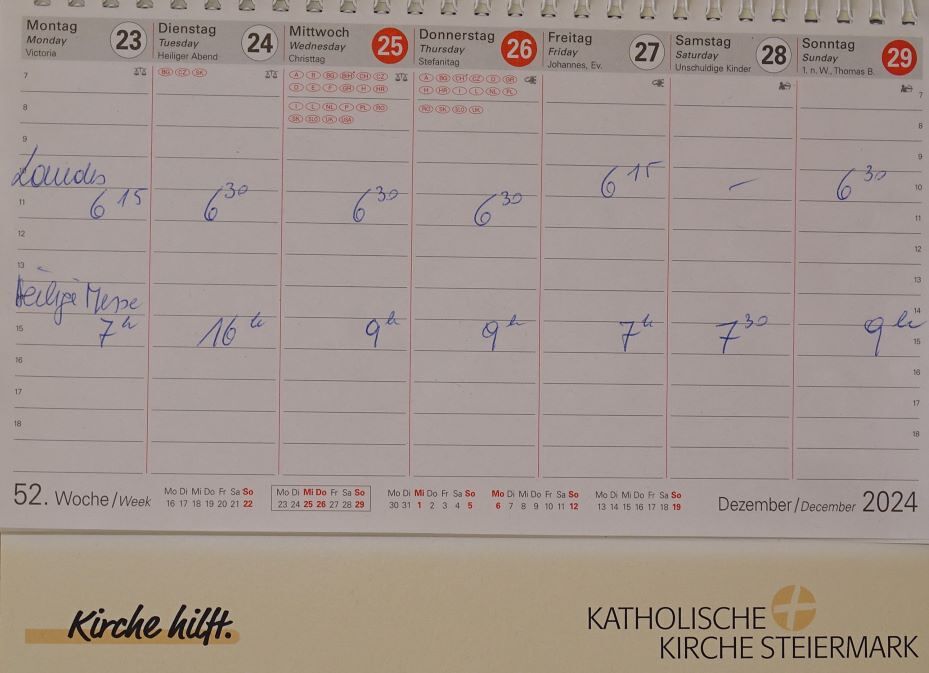 Montag Monday Victoria 23
Dienstag Tuesday Heiliger Abend 24
Mittwoch Wednesday Christtag 25
Donnerstag Thursday Stefanitag 26
Freitag Friday Johannes, Ev. 27
Samstag Saturday Unschuldige Kinder 28
Sonntag Sunday 1. n. W., Thomas B. 29
7 BG CZ SK A B BG BIH CH CZ A BG CH CZ D GR 7
D E F GR H HR H HR I L NL PL
8 I L NL P PL RO RO SK SLO UK 8
SK SLO UK USA
9 9
Lourdes 10
6 15 6 30 6 30 6 30 6 15 – 6 30
11 11
12 12
13 13
Heilige Messe 14
7 h 16 h 9 h 9 h 7 h 7 30 9 h
15 15
16 16
17 17
18 18
52. Woche/Week
Mo Di Mi Do Fr Sa So
16 17 18 19 20 21 22
Mo Di Mi Do Fr Sa So
23 24 25 26 27 28 29
Mo Di Mi Do Fr Sa So
30 31 1 2 3 4 5
Mo Di Mi Do Fr Sa So
6 7 8 9 10 11 12
Mo Di Mi Do Fr Sa So
13 14 15 16 17 18 19
Dezember/December 2024
Kirche hilft.
KATHOLISCHE
KIRCHE STEIERMARK